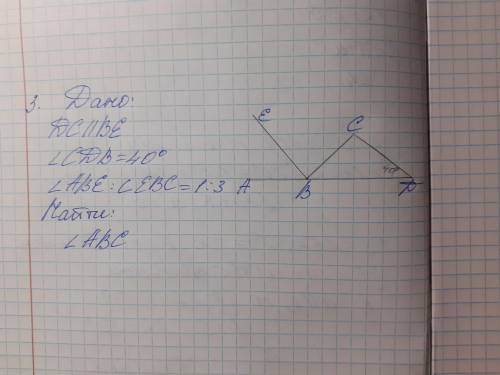 3. Дано:
DC||BE
∠CDB=40°
∠ABE:∠EBC=1:3
Найти:
∠ABC
E
C
40°
A
B
D